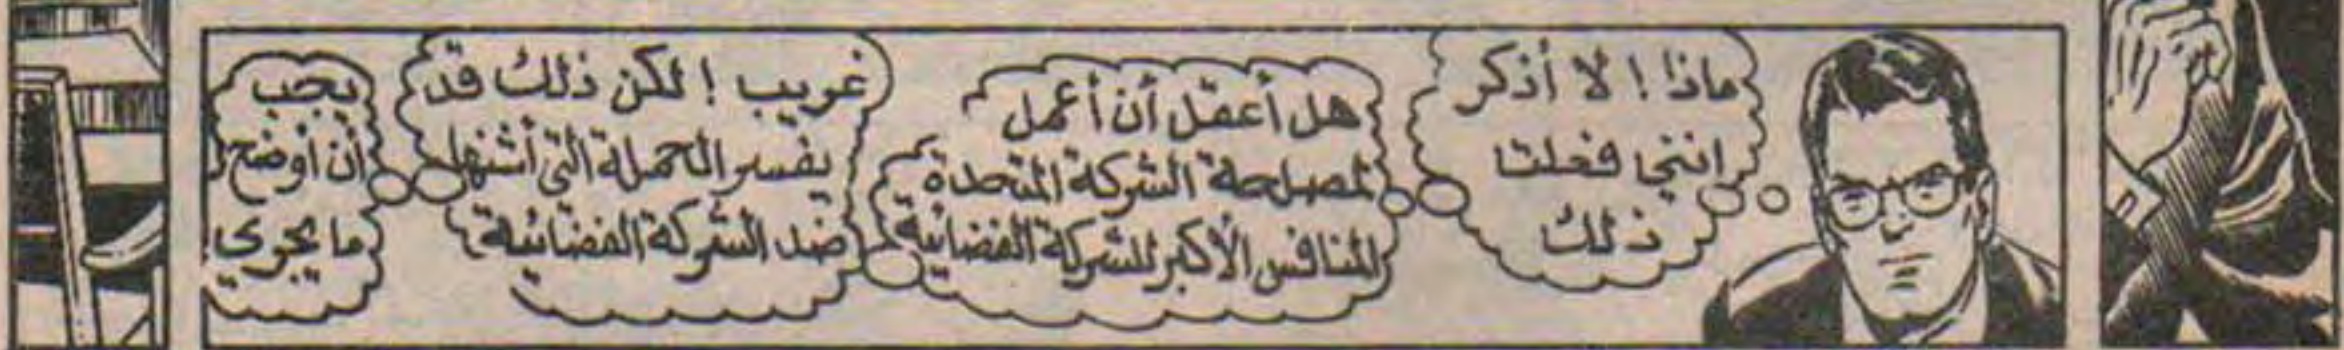 ماذا ! لا أذكر
انني فعلت
ذلك
هل أعقل أن أعمل
لمصلحة الشركة المتحدة
المنافس الأكبر للشركة الفضائية
غريب ! لكن ذلك قد
يفسر الحملة التي أشنها
ضد الشركة الفضائية
يجب
أن أوضح
ما يجري